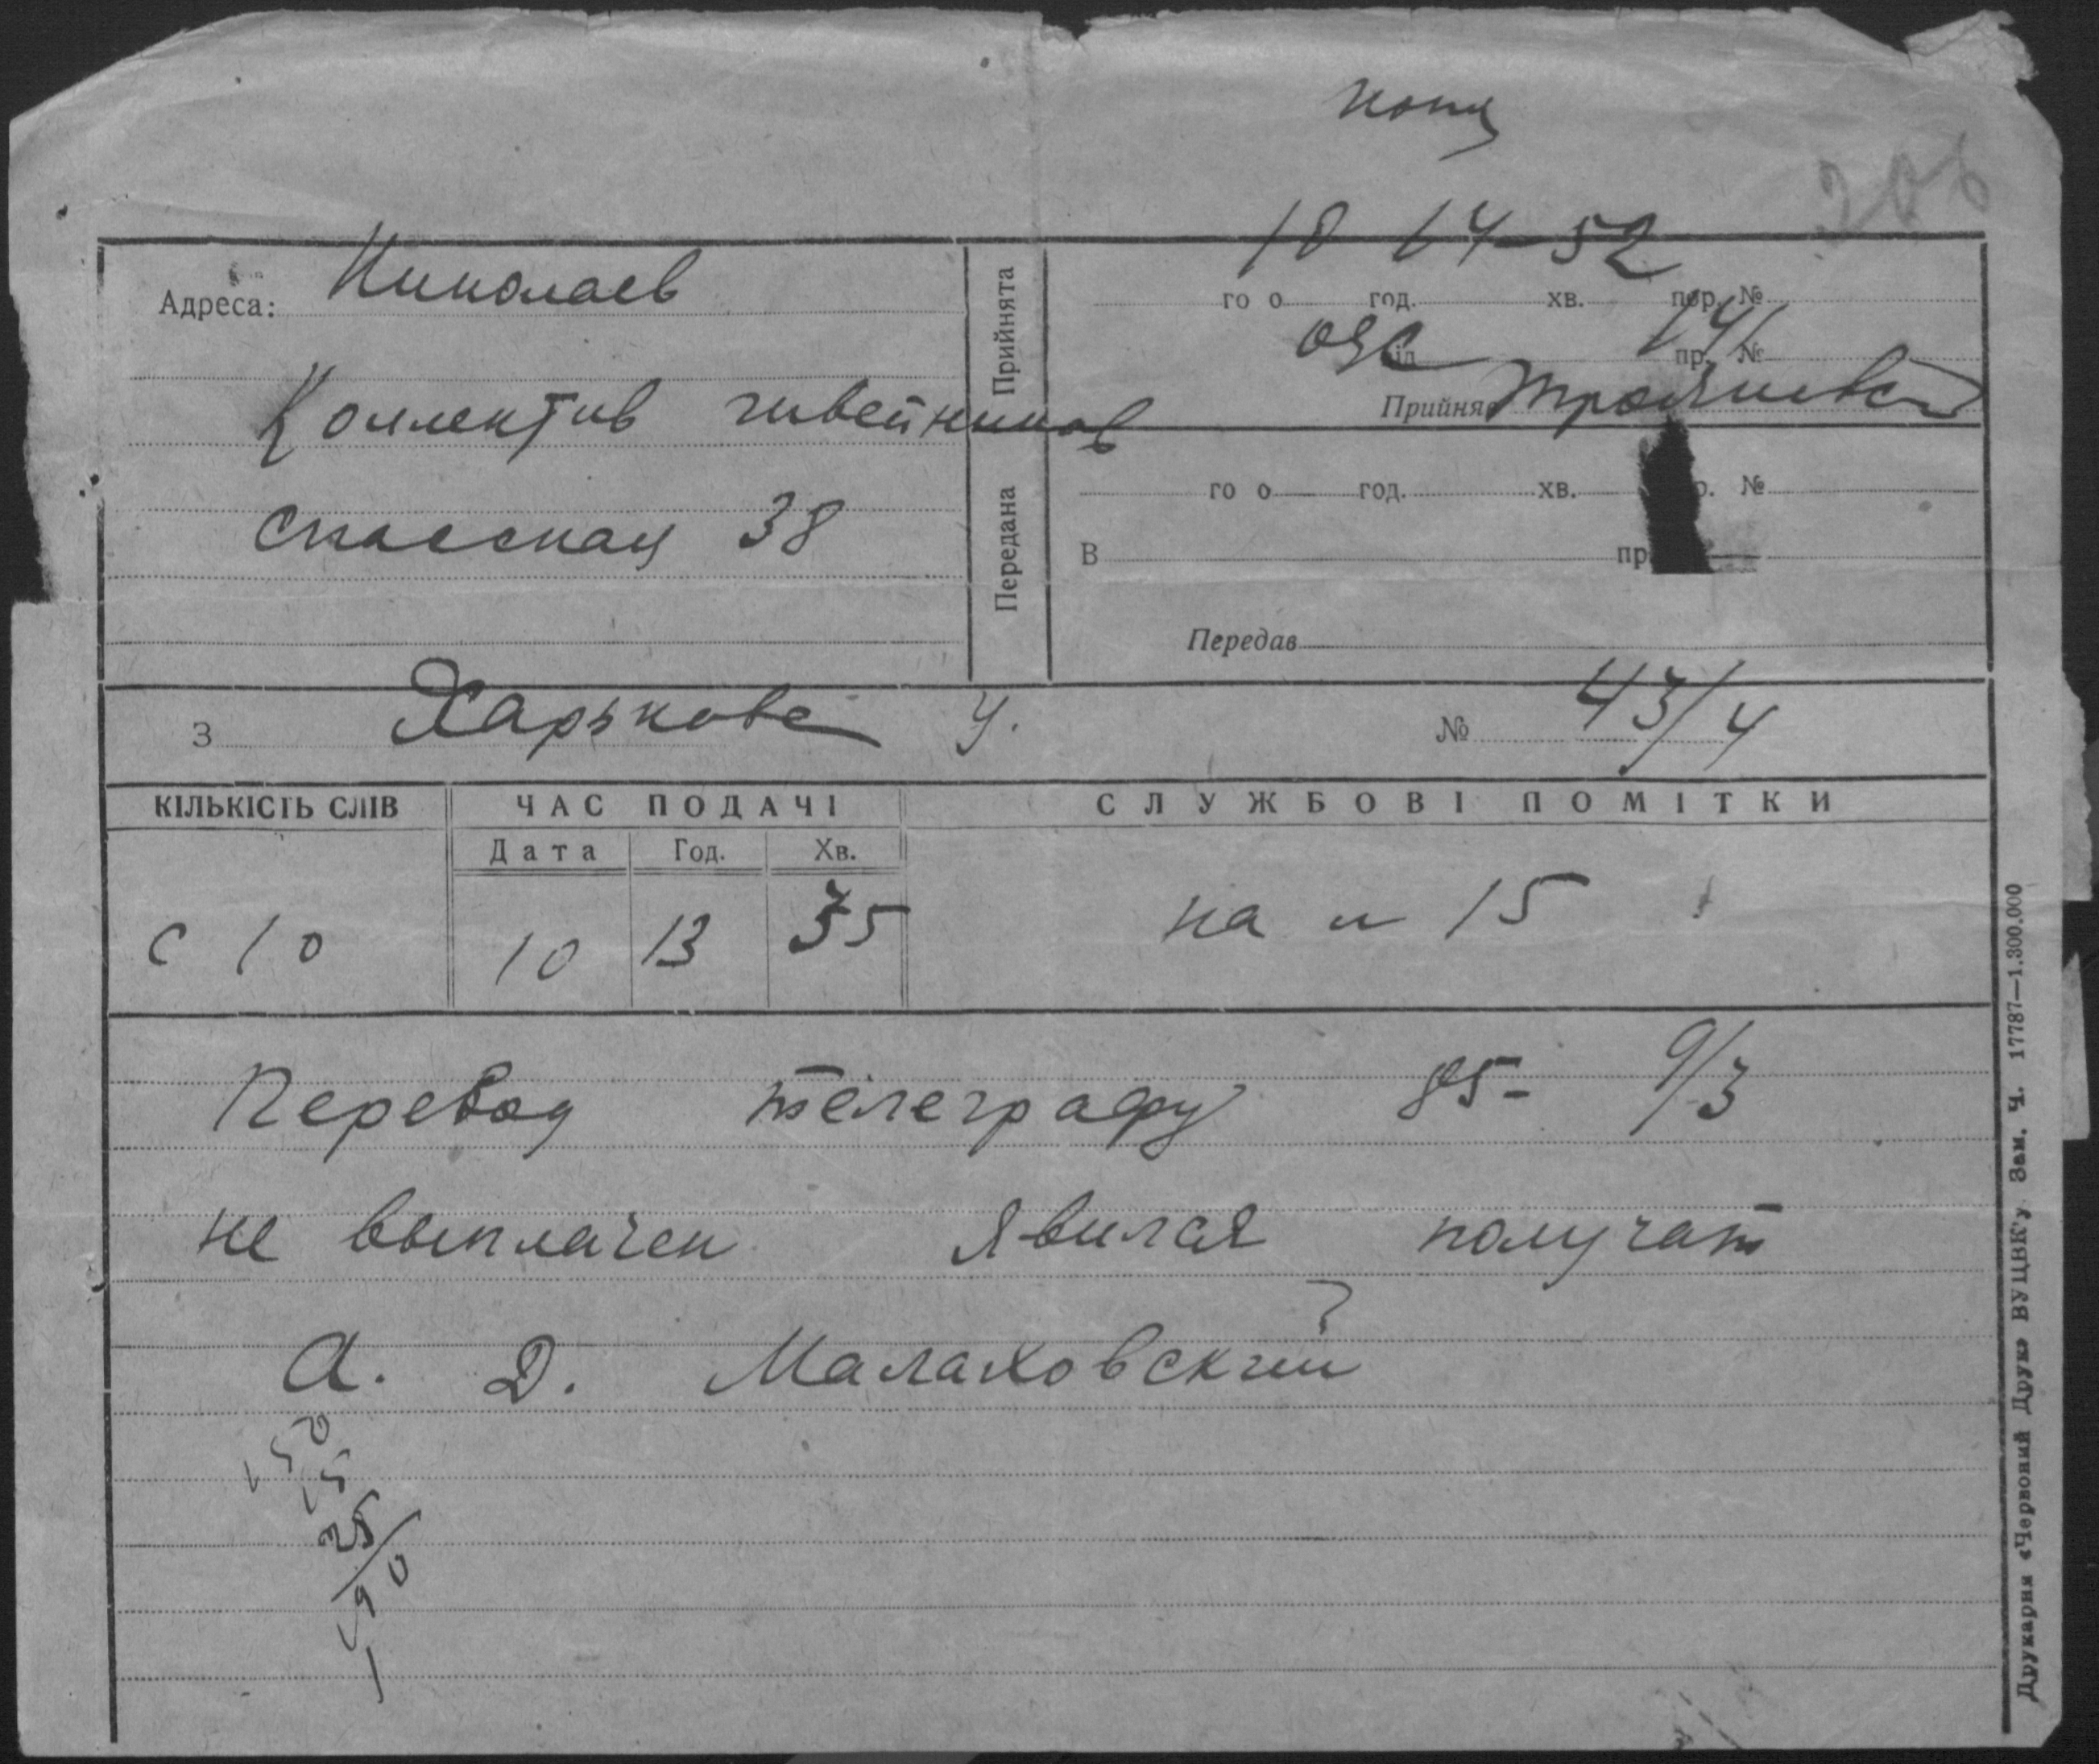 206
10 14-52
Адреса: Николаев
Прийнята
го о год. хв. пор. №
14/
пр. №
Коллектив швейников
Прийняв
Спасская 38
Передана
го о год. хв. р. №
В пр
Передав
З Харькова У. № 43/4
КІЛЬКІСТЬ СЛІВ ЧАС ПОДАЧІ СЛУЖБОВІ ПОМІТКИ
Дата Год. Хв.
с 10 10 13 35 на 15
Перевод телеграфу 85- 9/3
не выплачен явился получат
А. Д. Малаховский
150
15
25
190
Друкарня «Червоний Друк» ВУЦВК'у Зам. Ч. 17787—1.300.000